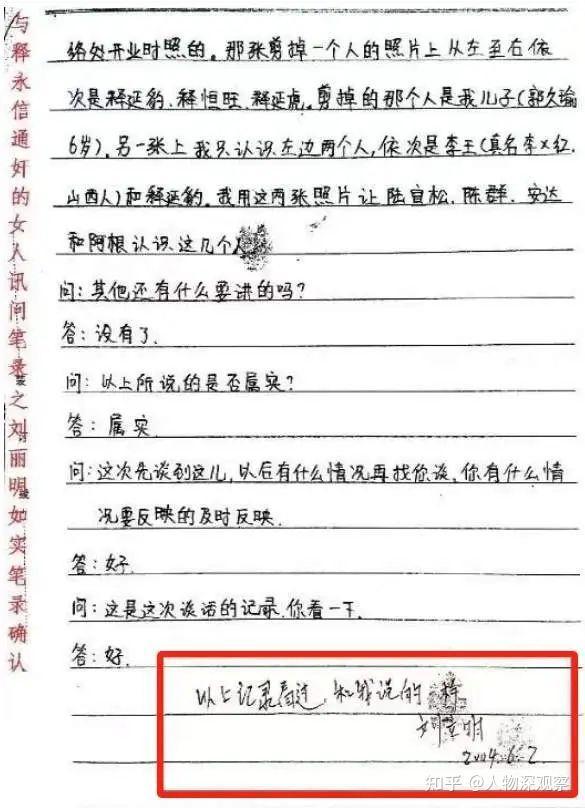 与释永信通奸的女人讯问笔录之刘丽明如实笔录确认
络处开业时照的。那张剪掉一个人的照片上从左至右依
次是释延豹、释恒旺、释延虎。剪掉的那个人是我儿子(郭久瑜
6岁)。另一张上我只认识左边两个人,依次是李王(真名李×红,
山西人)和释延豹。我用这两张照片让陆宜松、陈群、安达
和阿根认识这几个人
问:其他还有什么要讲的吗?
答:没有了.
问:以上所说的是否属实?
答:属实.
问:这次先谈到这儿,以后有什么情况再找你谈,你有什么情
况要反映的及时反映.
答:好.
问:这是这次谈话的记录.你看一下.
答:好.
以上记录看过,和我说的一样
刘立明
2004.6.2
知乎 @人物深观察